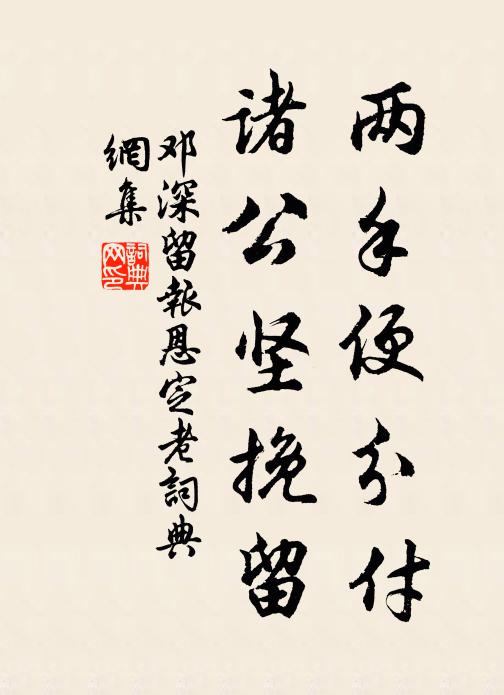 两手便分付
诸公坚挽留
邓深留報恩定老詞典
網集
詞典网印